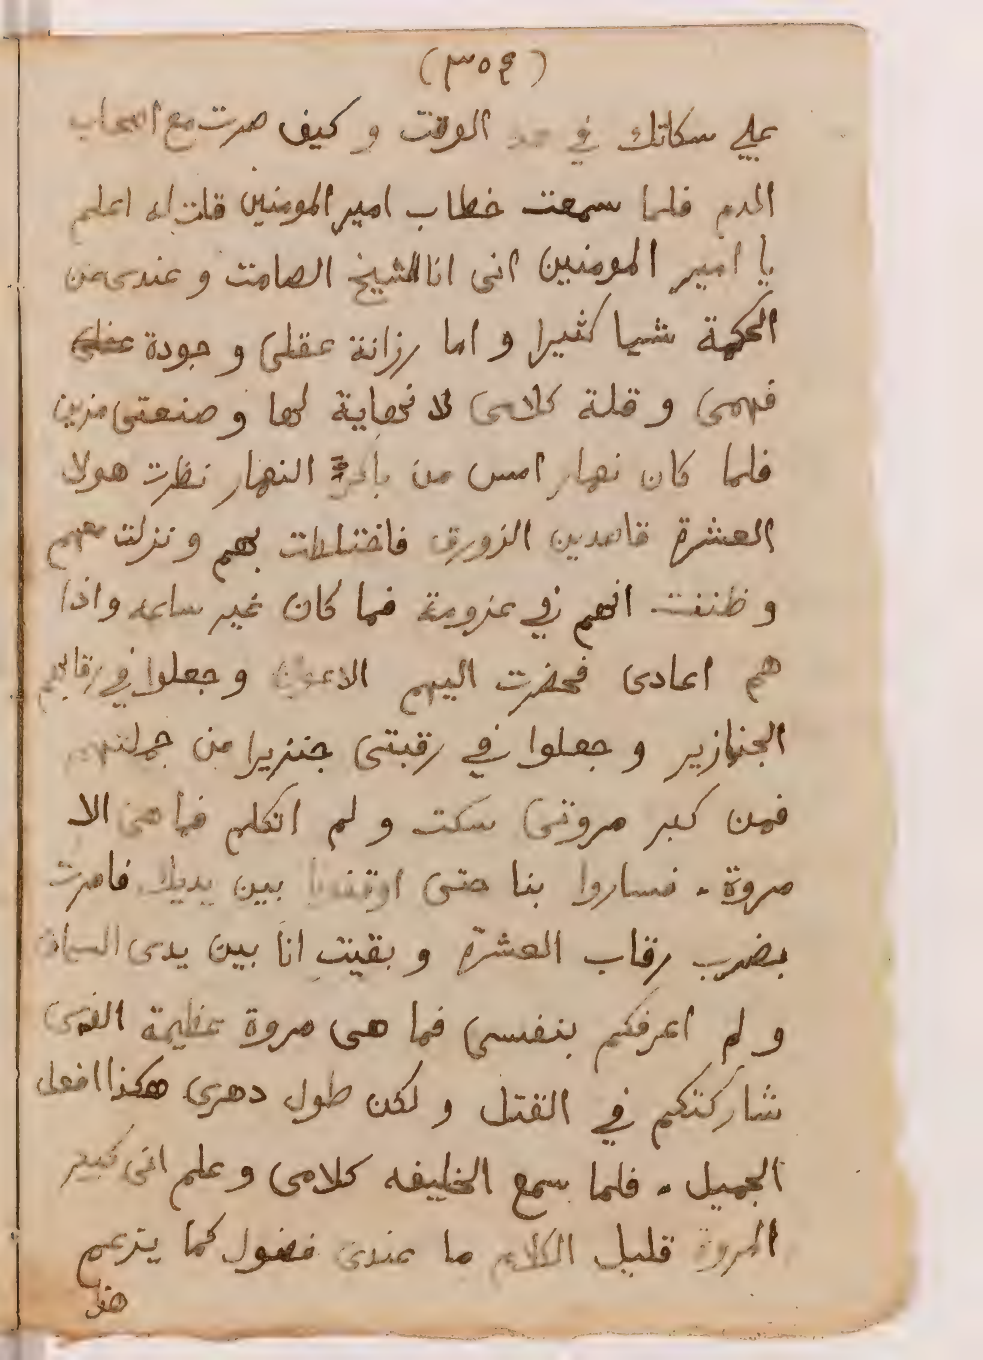 (٣٥٤)
علي سكاتك في الوقت و كيف صرت مع اصحاب
الدم فلما سمعت خطاب امير المومنين قلت له اعلم
يا امير المومنين انى انا الشيخ الصامت و عندى من
الحكمة شيا كثيرا و اما رزانة عقلى و جودة
فهمى و قلة كلامى لا نهاية لها و صنعتى مزين
فلما كان نهار امس من باكر النهار نظرت هولا
العشرة قاصدين الزورق فاختلطت بهم و نزلت معهم
و ظننت انهم في عزومة فما كان غير ساعه واذا
هم اعادى فحضرت اليهم الاعوان و جعلوا في رقابهم
الجنازير و جعلوا في رقبتى جنزيرا من جملتهم
فمن كبر مروتى سكت و لم اتكلم فما هى الا
مروة . فساروا بنا حتى اوقفونا بين يديك فامرت
بضرب رقاب العشرة و بقيت انا بين يدى السياف
و لم اعرفكم بنفسى فما هى مروة عظيمة التى
شاركتكم في القتل و لكن طول دهرى هكذا افعل
الجميل . فلما سمع الخليفه كلامى و علم انى كبير
المروة قليل الكلام ما عندى فضول كما يزعم
هذا